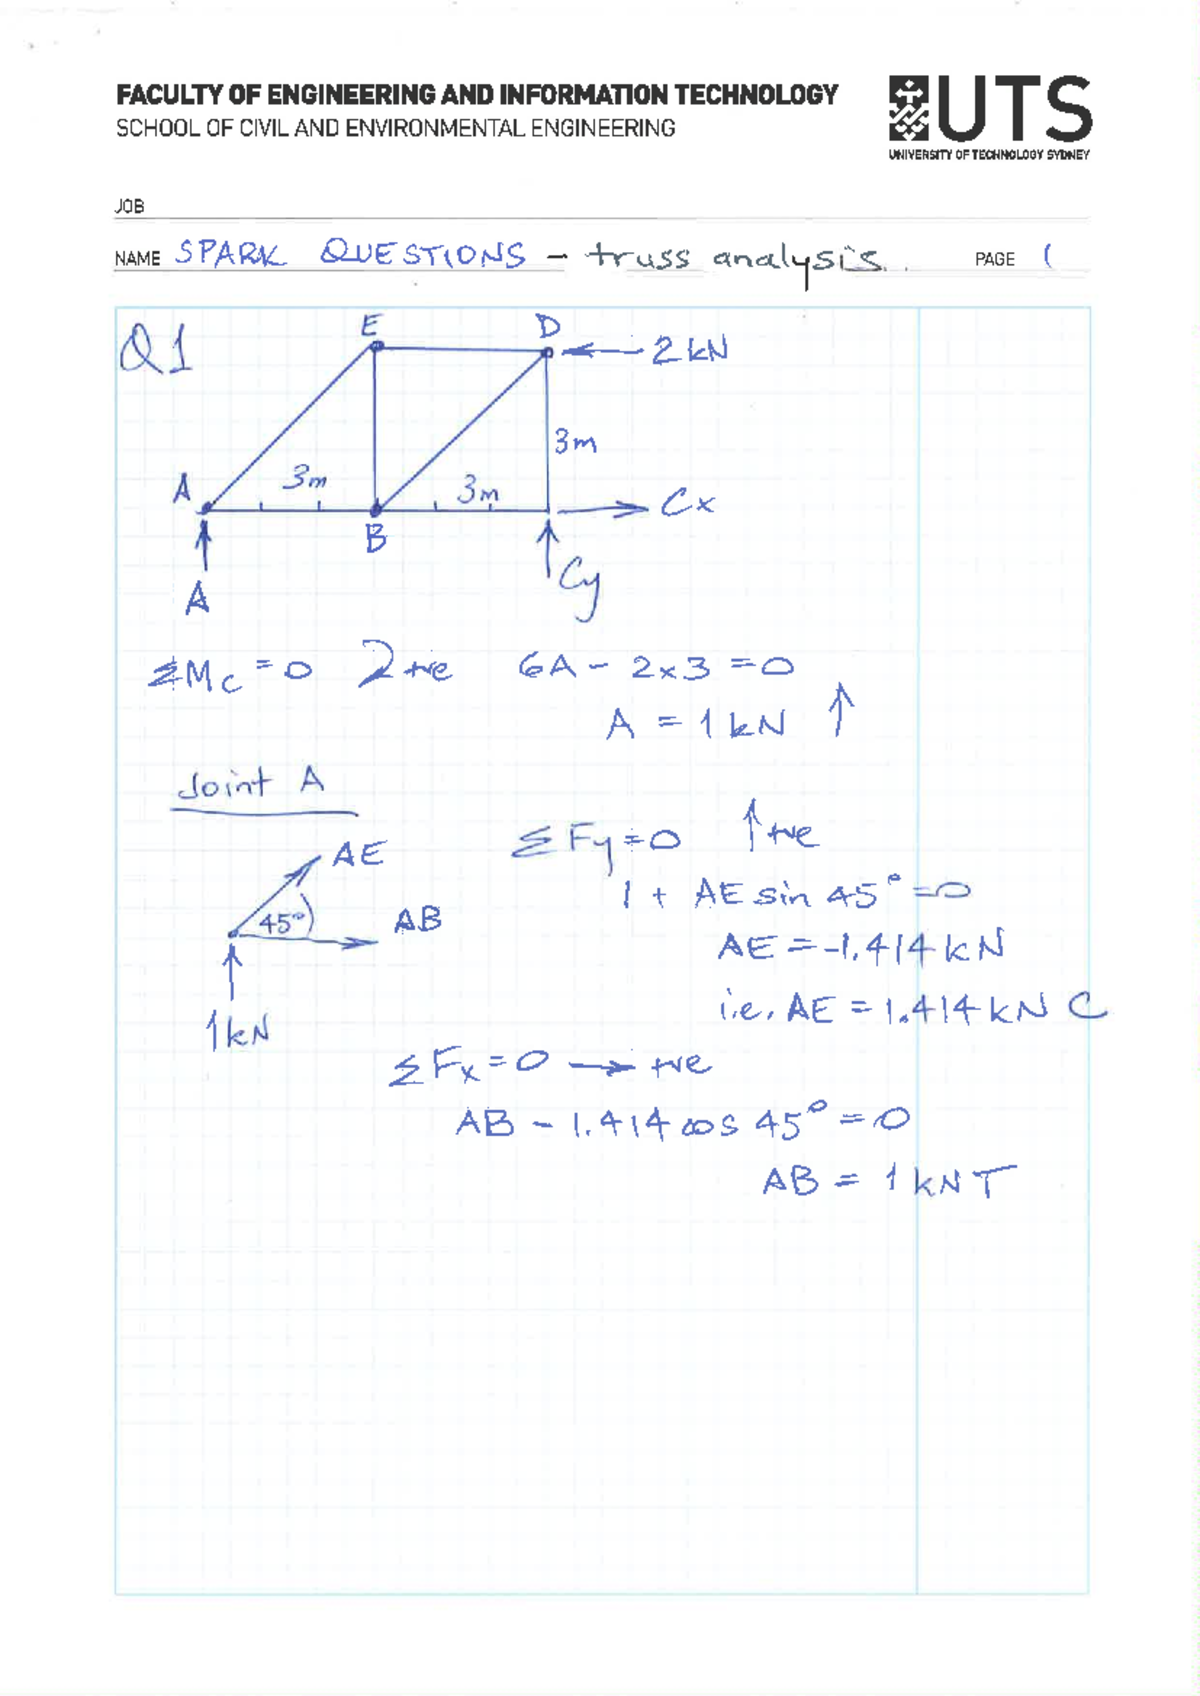 FACULTY OF ENGINEERING AND INFORMATION TECHNOLOGY
SCHOOL OF CIVIL AND ENVIRONMENTAL ENGINEERING
UTS
UNIVERSITY OF TECHNOLOGY SYDNEY
JOB
NAME SPARK QUESTIONS - truss analysis. PAGE 1
Q1
E D
← 2 kN
3m
A 3m 3m → Cx
B
↑ A ↑ Cy
ΣMc = 0 +ve 6A - 2x3 = 0
A = 1 kN ↑
Joint A
ΣFy = 0 ↑ +ve
AE
1 + AE sin 45° = 0
45° AB
AE = -1.414 kN
i.e. AE = 1.414 kN C
1 kN
ΣFx = 0 → +ve
AB - 1.414 cos 45° = 0
AB = 1 kN T